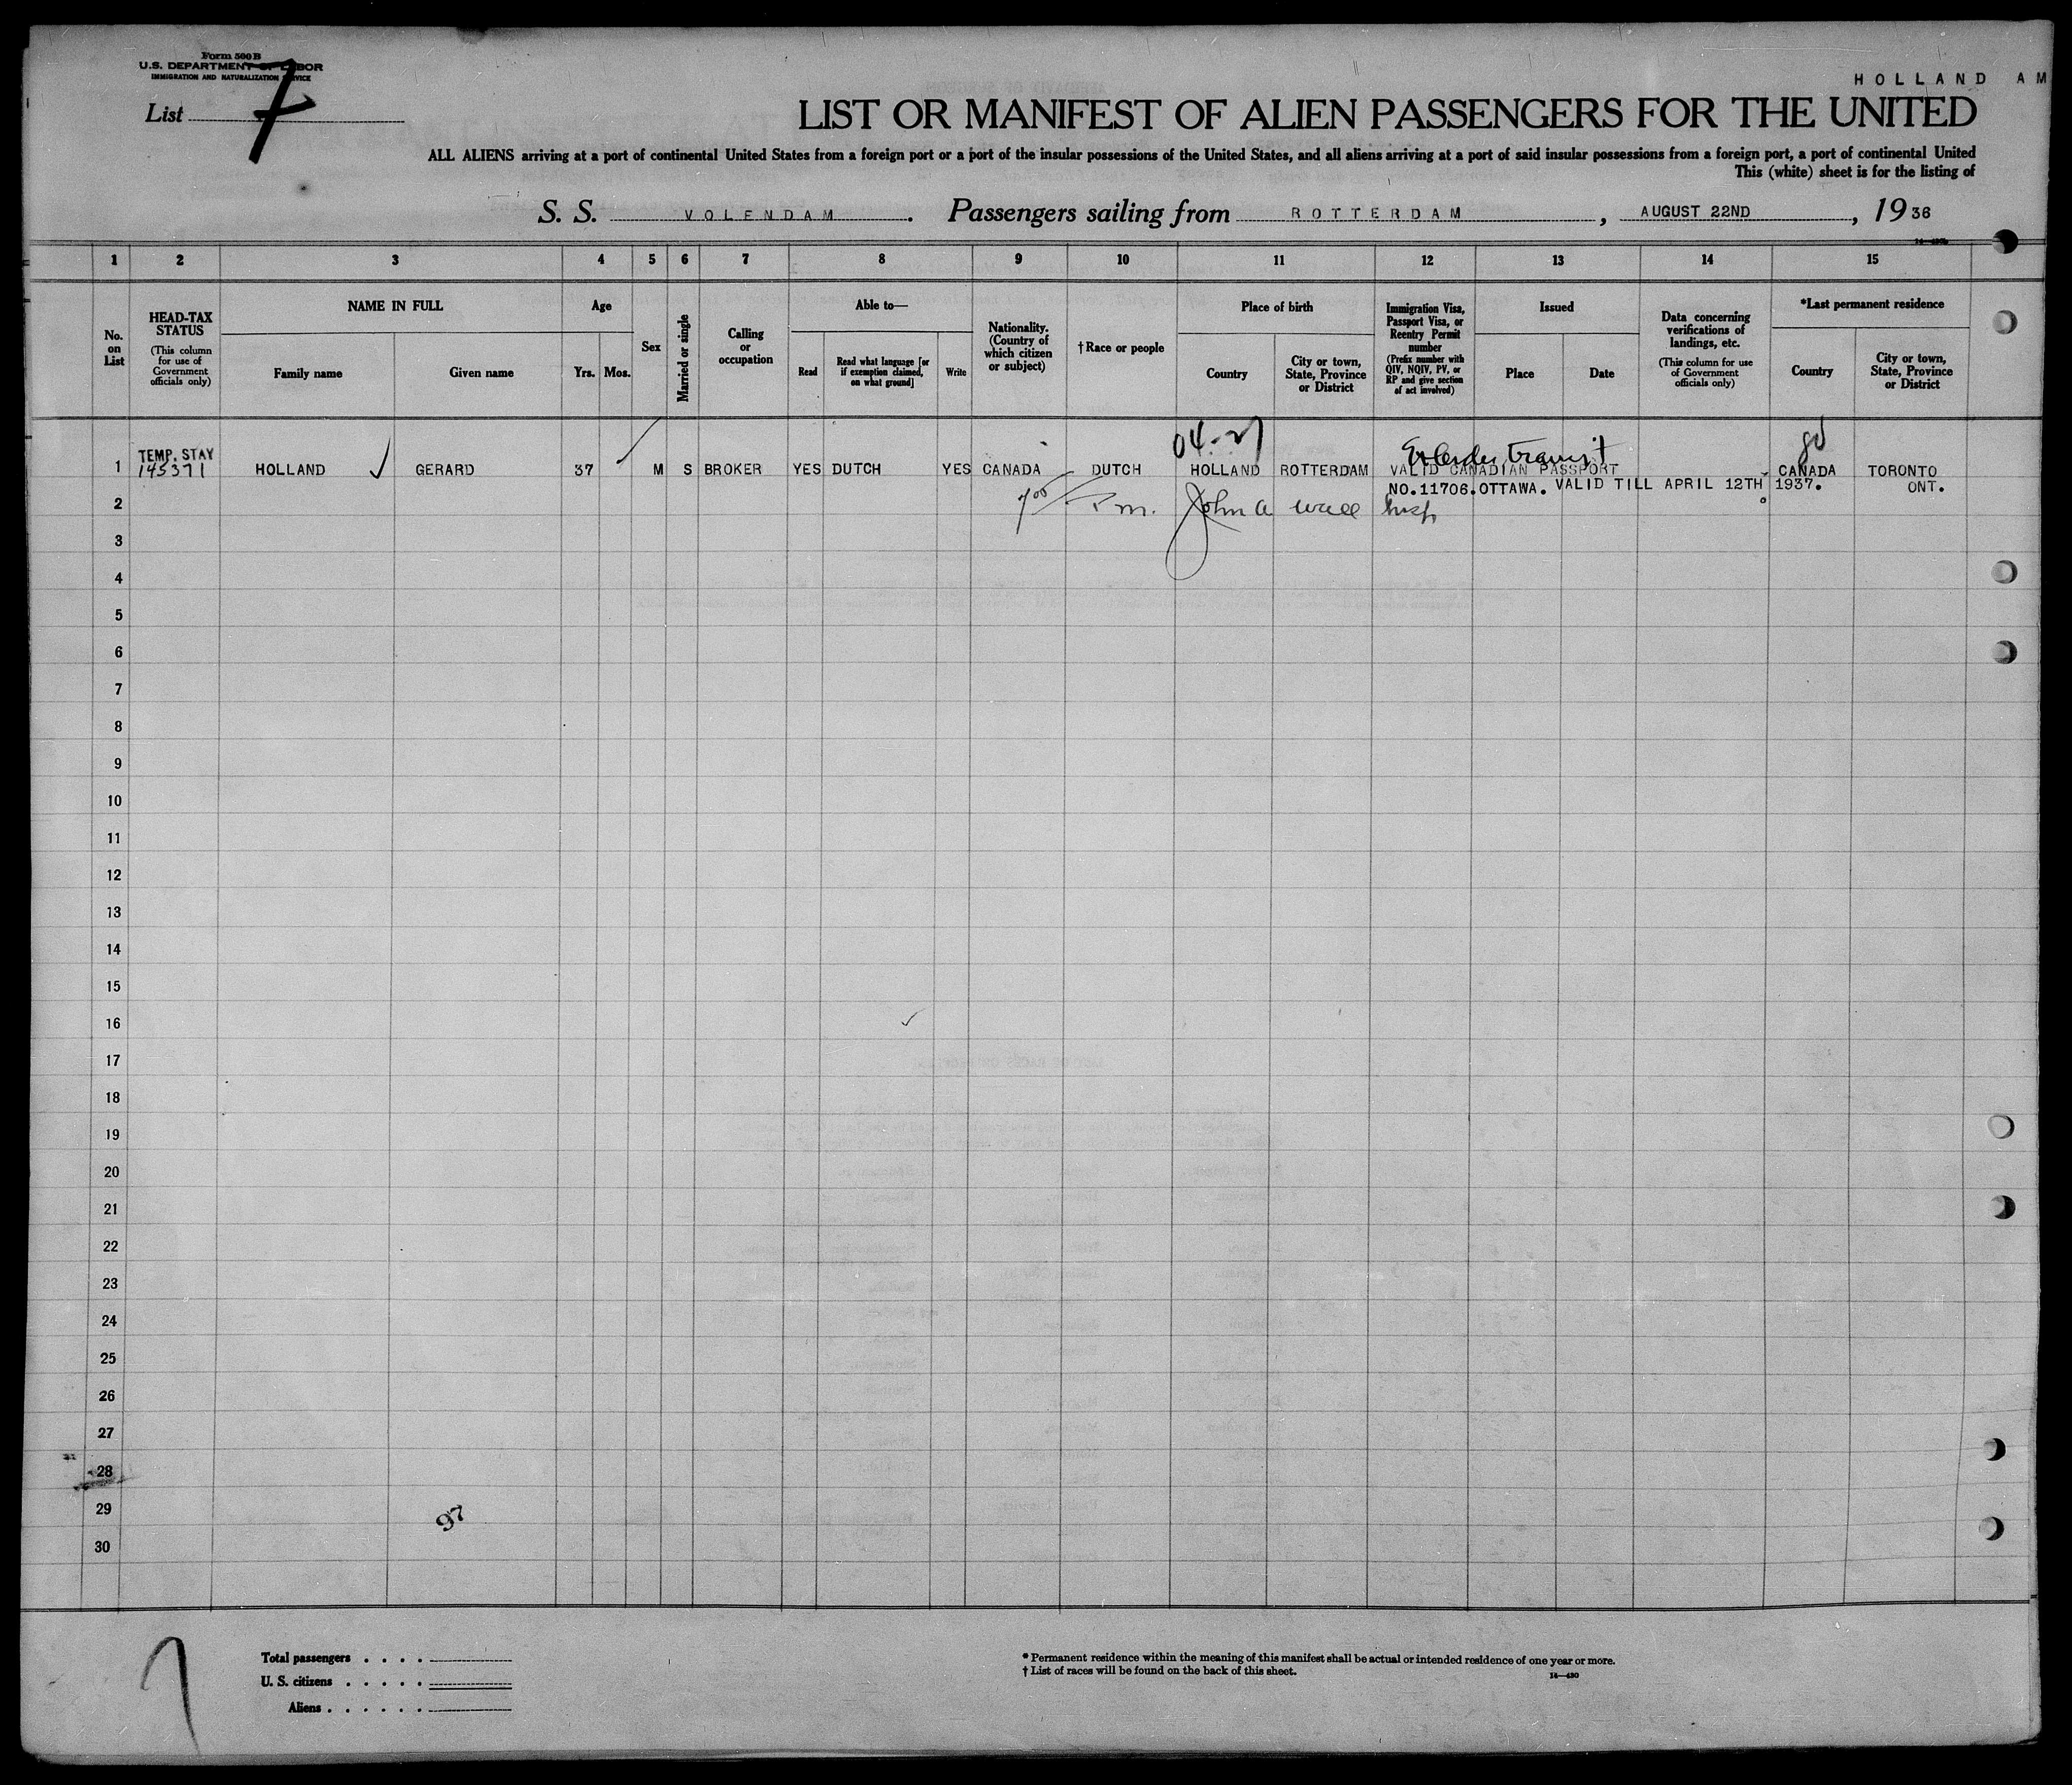 Form 500 B
U.S. DEPARTMENT OF LABOR
IMMIGRATION AND NATURALIZATION SERVICE
List 7
HOLLAND AM
LIST OR MANIFEST OF ALIEN PASSENGERS FOR THE UNITED
ALL ALIENS arriving at a port of continental United States from a foreign port or a port of the insular possessions of the United States, and all aliens arriving at a port of said insular possessions from a foreign port, a port of continental United
This (white) sheet is for the listing of
S. S. VOLENDAM. Passengers sailing from ROTTERDAM, AUGUST 22ND, 1936
1 2 3 4 5 6 7 8 9 10 11 12 13 14 15
No. on List
HEAD-TAX STATUS
(This column for use of Government officials only)
NAME IN FULL
Family name
Given name
Age
Yrs. Mos.
Sex
Married or single
Calling or occupation
Able to—
Read
Read what language [or if exemption claimed, on what ground]
Write
Nationality. (Country of which citizen or subject)
†Race or people
Place of birth
Country
City or town, State, Province or District
Immigration Visa, Passport Visa, or Reentry Permit number
(Prefix number with QIV, NQIV, PV, or RP and give section of act involved)
Issued
Place
Date
Data concerning verifications of landings, etc.
(This column for use of Government officials only)
*Last permanent residence
Country
City or town, State, Province or District
TEMP. STAY
04-27
transit
1 145371 HOLLAND ✓ GERARD 37 M S BROKER YES DUTCH YES CANADA DUTCH HOLLAND ROTTERDAM VALID CANADIAN PASSPORT CANADA TORONTO
NO.11706.OTTAWA. VALID TILL APRIL 12TH 1937. ONT.
2 John A Wall Insp
3
4
5
6
7
8
9
10
11
12
13
14
15
16
17
18
19
20
21
22
23
24
25
26
27
28
29
30
97
7
Total passengers
U. S. citizens
Aliens
* Permanent residence within the meaning of this manifest shall be actual or intended residence of one year or more.
† List of races will be found on the back of this sheet.
14—430